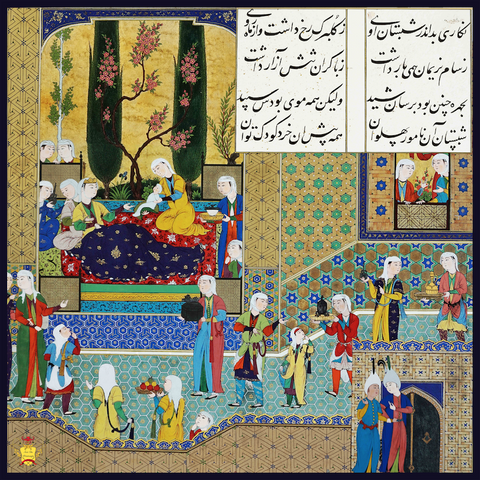 نگاری بد اندر شبستان اوی
ز گلبرگ رخ داشت
ز سام نریمان همی بار داشت
ز بار گران تنش آزار داشت
بچهره چنین بود برسان شید
ولیکن همه موی بودش سپید
شبستان آن نامور پهلوان
همه پیش آن خرد کودک نوان